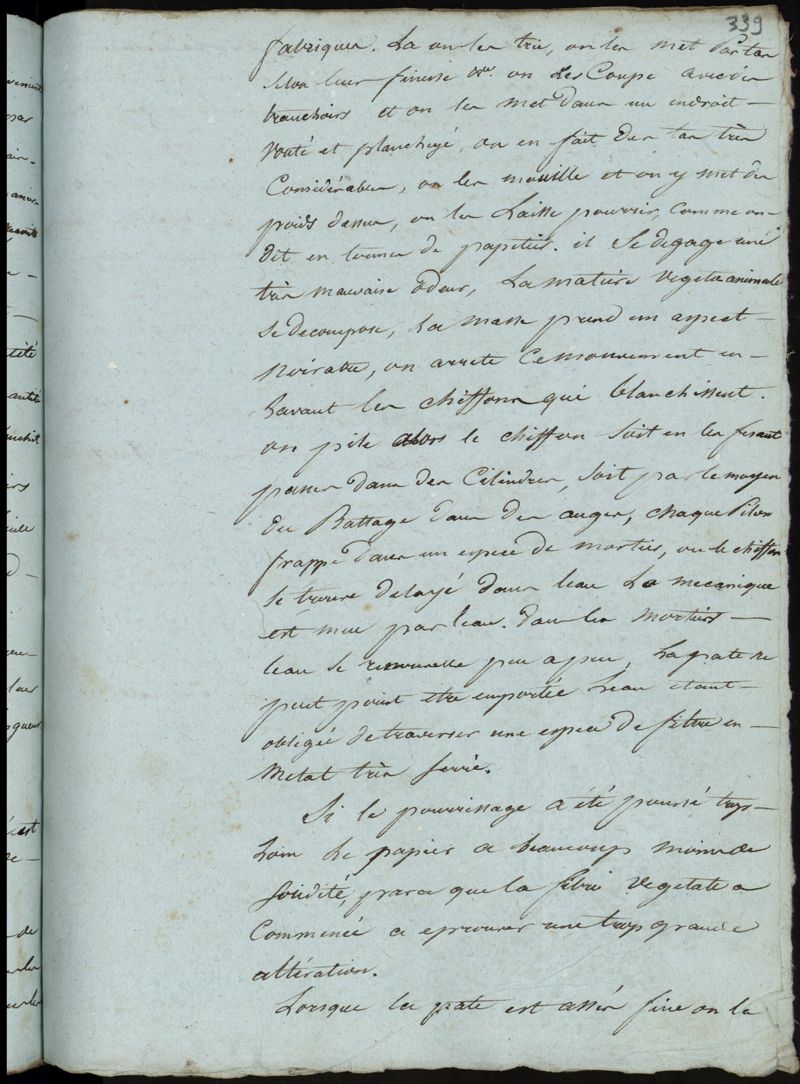 339
fabriquer. La on les trie, on les met par tas
selon leur finesse &c. on Les Coupe avec des
tranchoirs et on les met dans un endroit —
Vouté et planchéyé, on en fait des tas très
Considérables, on les mouille et on y met des
poids dessus, on les Laisse pourrir, Comme on
dit en termes de papetiers. il se degage une
très mauvaise odeur, La matiere vegeto animale
se decompose, La masse prend un aspect —
Noiratre, on arrete Ce mouvement en —
Lavant les chiffons qui blanchissent.
on pile alors le chiffon soit en les fesant
passer dans des Cilindres, soit par le moyen
du Battage dans des auges, chaque Pilon
frappe dans un espece de mortier, ou le chiffon
se trouve delayé dans leau La mecanique
est mue par leau. dans les mortiers —
leau se renouvelle peu a peu, La pate ne
peut point etre emportée Leau etant —
obligée de traverser une espece de filtre en —
Metal très serré.
Si le pourrissage a été poussé trop —
Loin Le papier a beaucoup moins de
solidité, parce que la fibre Vegetale a
Commencé a eprouver une trop grande
altération.
Lorsque la pate est assez fine on la